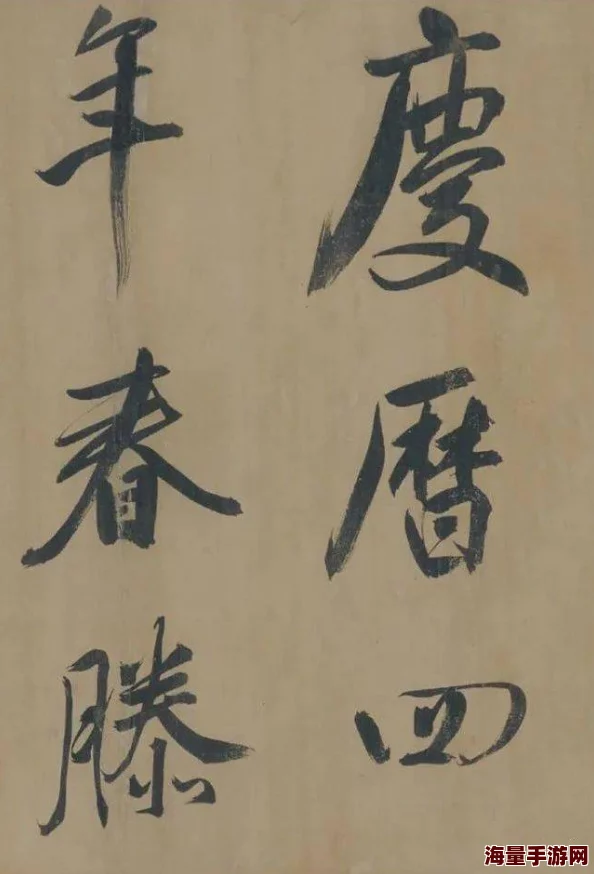 慶曆四
年春滕
海量手游网